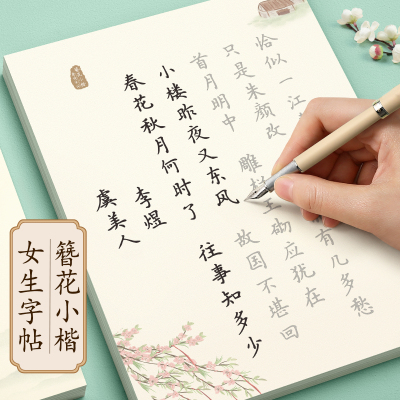 虞美人
李煜
春花秋月何时了 往事知多少
小楼昨夜又东风 故国不堪回
首月明中 雕 砌应犹在
只是朱颜改 有几多愁
恰似一江
簪花小楷
女生字帖